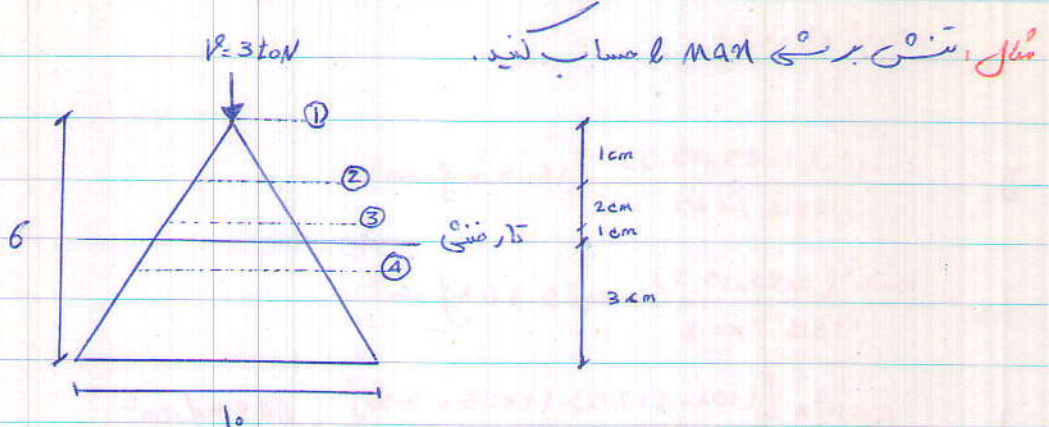 مثال: تنش برشی MAX را حساب کنید.
V=3toN
①
②
③
④
تار خنثی
6
10
1cm
2cm
1cm
3cm